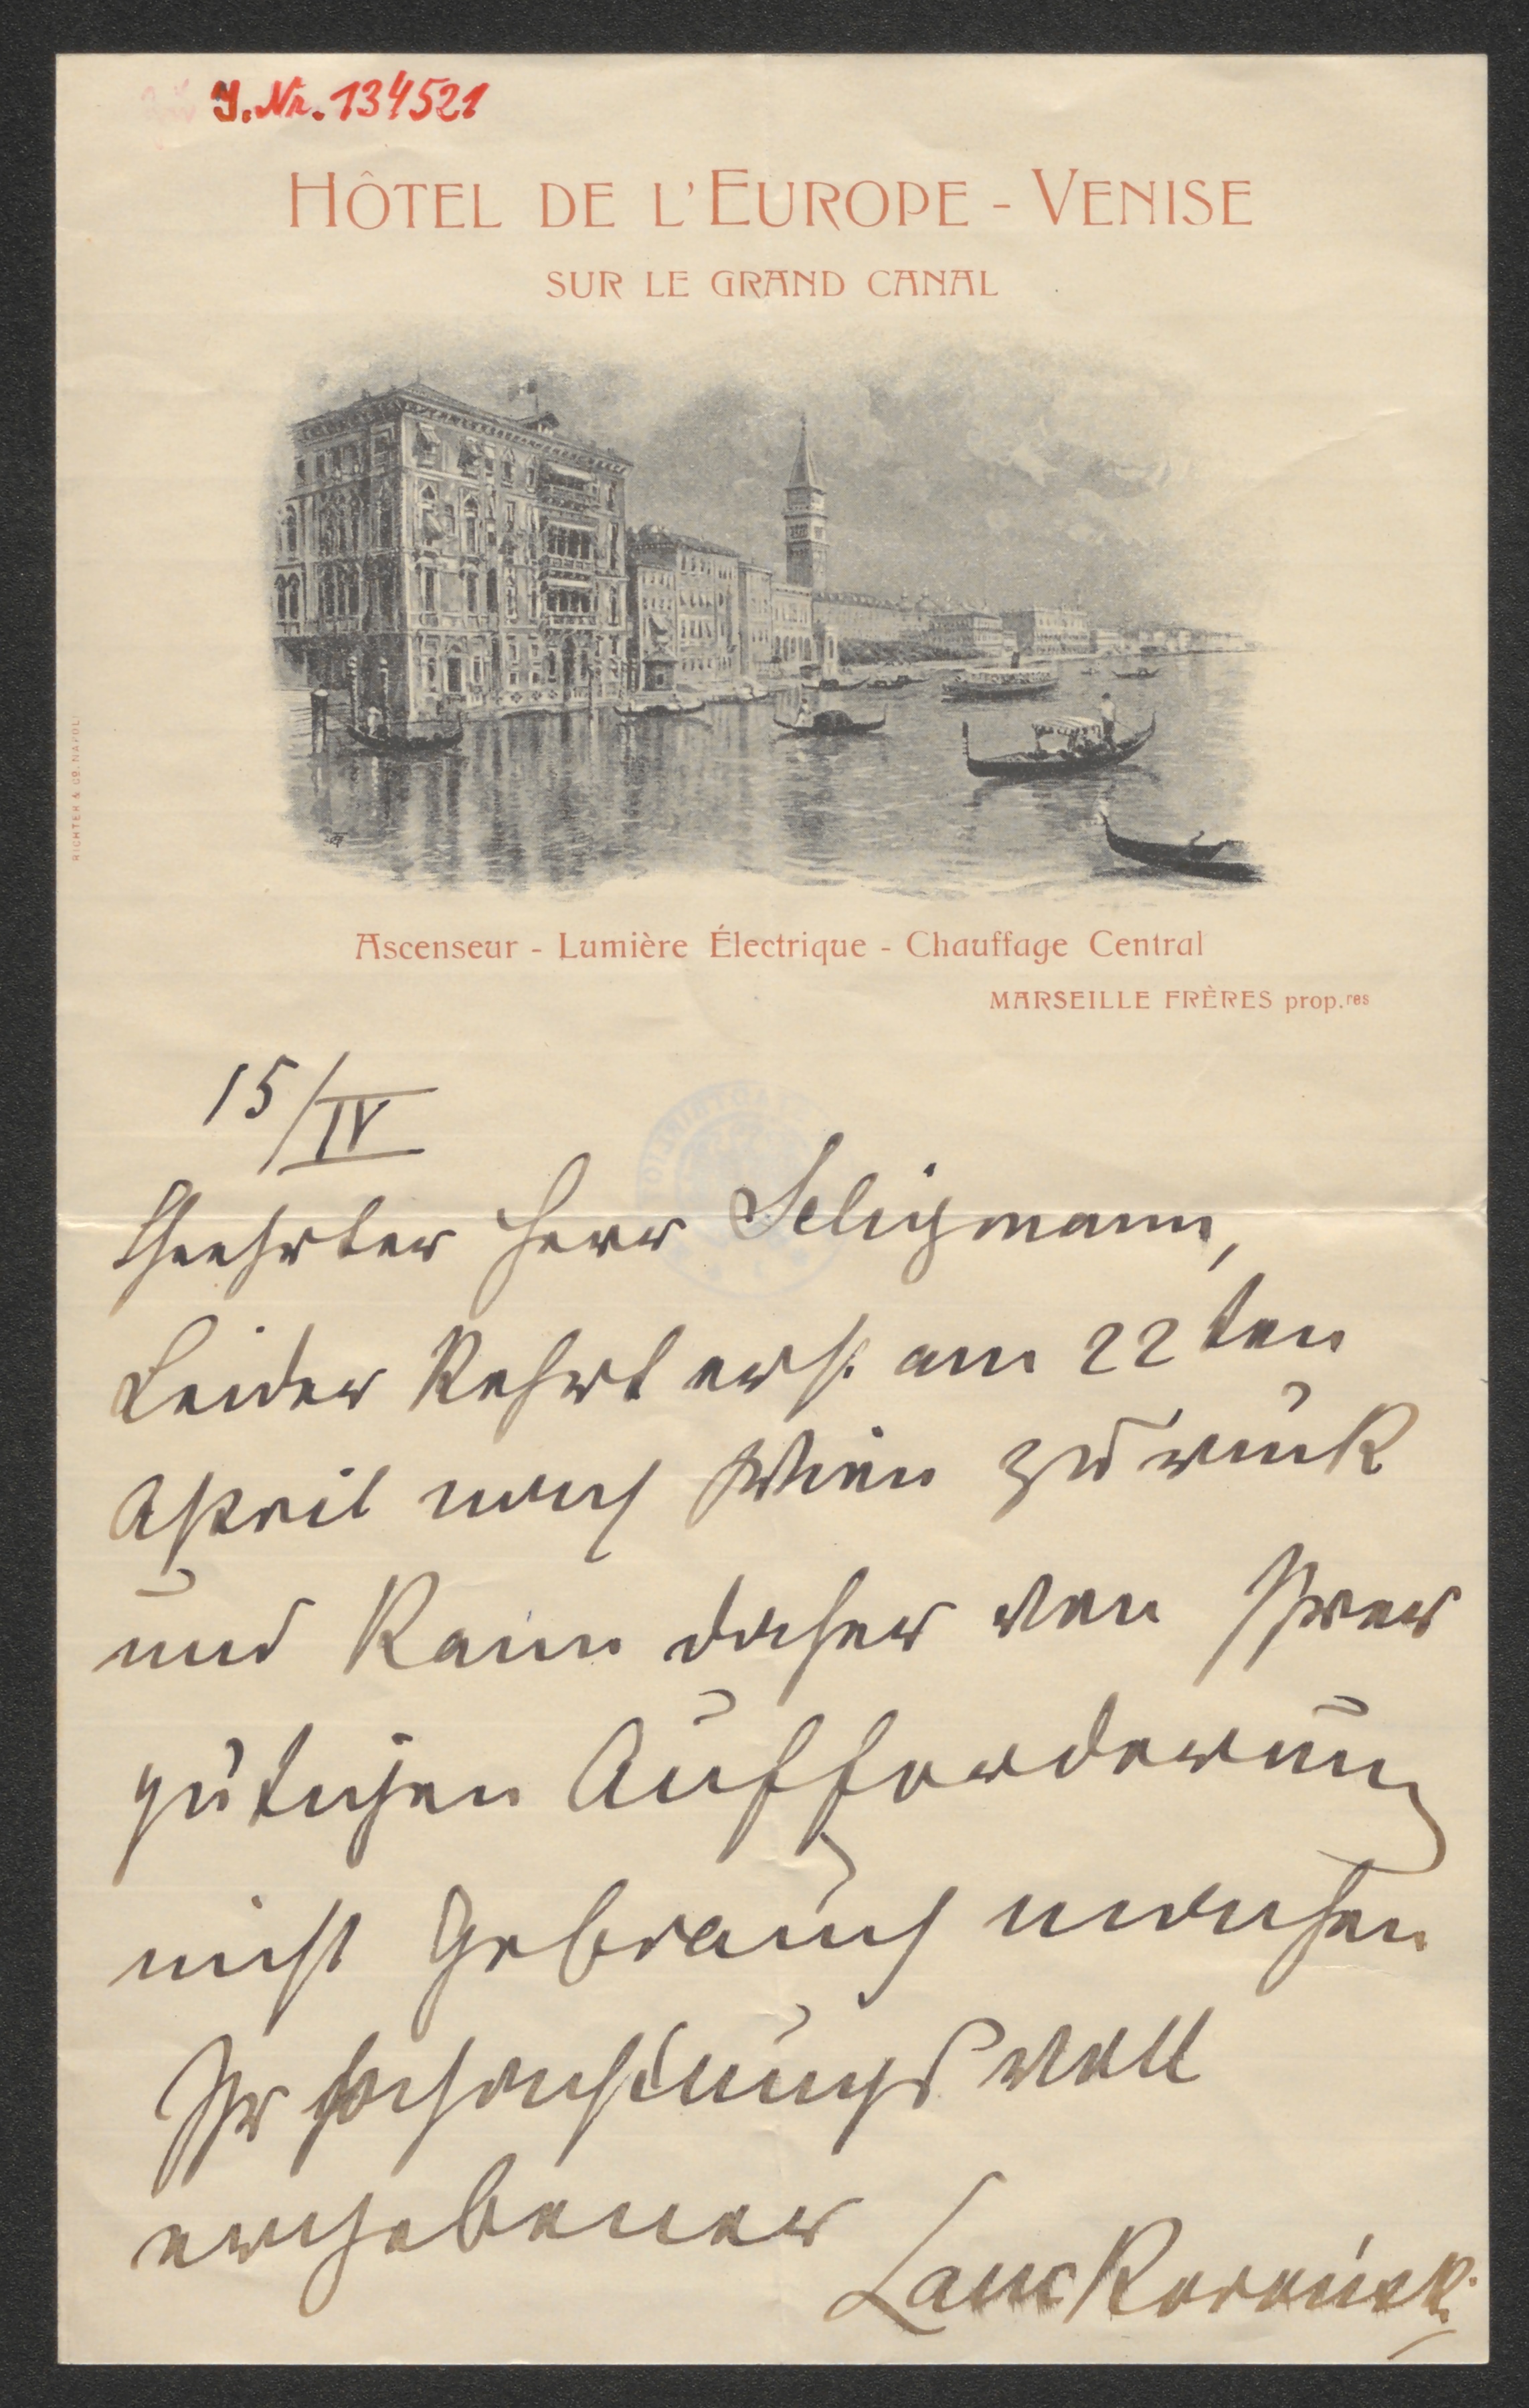 J. Nr. 134521
HÔTEL DE L'EUROPE - VENISE
SUR LE GRAND CANAL
RICHTER & Co. NAPOLI
Ascenseur - Lumière Électrique - Chauffage Central
MARSEILLE FRÈRES prop.res
15/IV
Geehrter Herr Seligmann,
Leider kehrt erst am 22ten
April nach Wien zurück
und kann daher von Ihrer
gütigen Aufforderung
nicht Gebrauch machen
Ihr hochachtungsvoll
ergebener
Lanckoroński